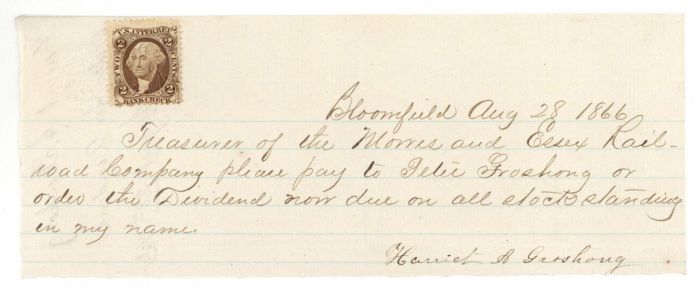 U.S. INTER. REV.
2 2
TWO CENTS
2 2
BANK CHECK
Bloomfield Aug 28 1866
Treasurer of the Morris and Essex Rail-
road Company please pay to Peter Groshong or
order the Dividend now due on all stock standing
in my name.
Harriet A Groshong